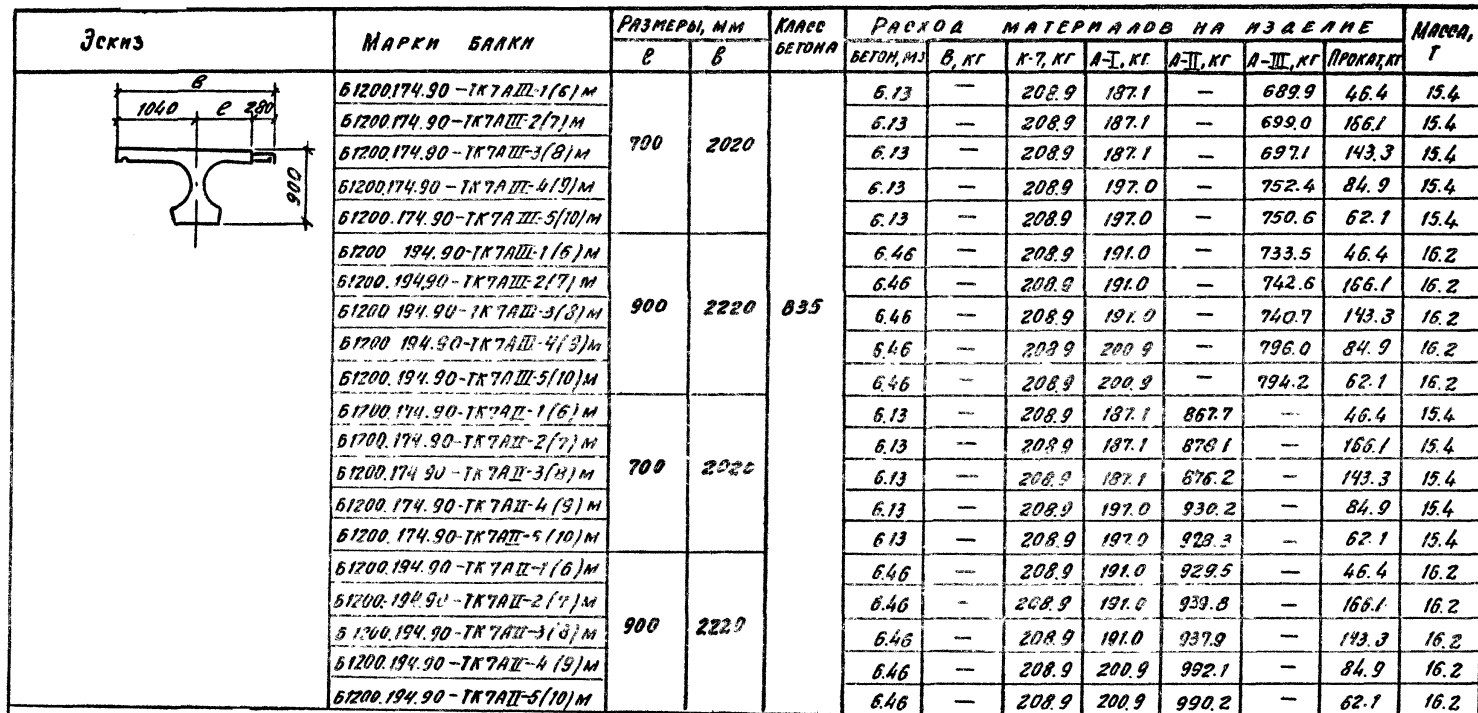 Эскиз
Марки балки
Размеры, мм
Класс бетона
Расход материалов на изделие
Масса, т
ℓ в
Бетон, м3 В, кг К-7, кг А-I, кг А-II, кг А-III, кг Прокат, кг
в
1040 ℓ 280
900
Б1200.174.90-ТК7АIII-1(6)м 6.13 — 208.9 187.1 — 689.9 46.4 15.4
Б1200.174.90-ТК7АIII-2(7)м 6.13 — 208.9 187.1 — 699.0 166.1 15.4
Б1200.174.90-ТК7АIII-3(8)м 700 2020 6.13 — 208.9 187.1 — 697.1 143.3 15.4
Б1200.174.90-ТК7АIII-4(9)м 6.13 — 208.9 197.0 — 752.4 84.9 15.4
Б1200.174.90-ТК7АIII-5(10)м 6.13 — 208.9 197.0 — 750.6 62.1 15.4
Б1200 194.90-ТК7АIII-1(6)м 6.46 — 208.9 191.0 — 733.5 46.4 16.2
Б1200.194.90-ТК7АIII-2(7)м 6.46 — 208.9 191.0 — 742.6 166.1 16.2
Б1200 194.90-ТК7АIII-3(8)м 900 2220 В35 6.46 — 208.9 191.0 — 740.7 143.3 16.2
Б1200 194.90-ТК7АIII-4(9)м 6.46 — 208.9 200.9 — 796.0 84.9 16.2
Б1200.194.90-ТК7АIII-5(10)м 6.46 — 208.9 200.9 — 794.2 62.1 16.2
Б1200.174.90-ТК7АII-1(6)м 6.13 — 208.9 187.1 867.7 — 46.4 15.4
Б1200.174.90-ТК7АII-2(7)м 6.13 — 208.9 187.1 878.1 — 166.1 15.4
Б1200.174.90-ТК7АII-3(8)м 700 2020 6.13 — 208.9 187.1 876.2 — 143.3 15.4
Б1200.174.90-ТК7АII-4(9)м 6.13 — 208.9 197.0 930.2 — 84.9 15.4
Б1200.174.90-ТК7АII-5(10)м 6.13 — 208.9 197.0 928.3 — 62.1 15.4
Б1200.194.90-ТК7АII-1(6)м 6.46 — 208.9 191.0 929.5 — 46.4 16.2
Б1200.194.90-ТК7АII-2(7)м 6.46 - 208.9 191.0 939.8 — 166.1 16.2
Б1200.194.90-ТК7АII-3(8)м 900 2220 6.46 — 208.9 191.0 937.9 — 143.3 16.2
Б1200.194.90-ТК7АII-4(9)м 6.46 — 208.9 200.9 992.1 — 84.9 16.2
Б1200.194.90-ТК7АII-5(10)м 6.46 — 208.9 200.9 990.2 — 62.1 16.2